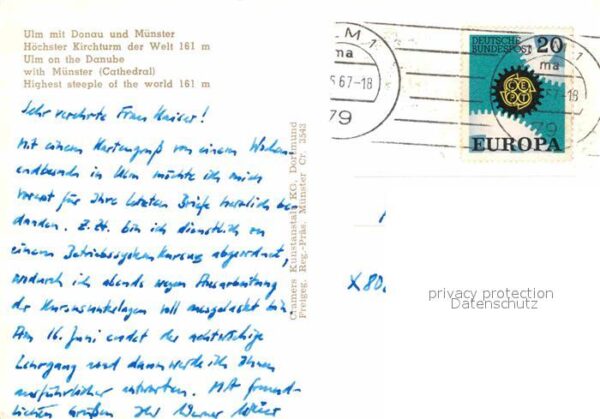 Ulm mit Donau und Münster
Höchster Kirchturm der Welt 161 m
Ulm on the Danube
with Münster (Cathedral)
Highest steeple of the world 161 m
Sehr verehrte Frau Kaiser!
Mit einem Kartengruß von einem Wochen-
endbesuch in Ulm möchte ich mich
vorerst für Ihre letzten Briefe herzlich be-
danken. Z.Zt. bin ich dienstlich zu
einem Betriebssystem Kursus abgeordnet,
wodurch ich abends wegen Ausarbeitung
der Kursusunterlagen voll ausgelastet bin.
Am 16. Juni endet der achtwöchige
Lehrgang und dann werde ich Ihnen
ausführlicher antworten. Mit freund-
lichen Grüßen Ihr Werner
Cramers Kunstanstalt KG, Dortmund
Freigeg. Reg.-Präs. Münster Cr. 3543
LM 1
ma
6.67-18
79
DEUTSCHE
BUNDESPOST
20
CEPT
EUROPA
M 1
ma
67-18
79
X80.
privacy protection
Datenschutz